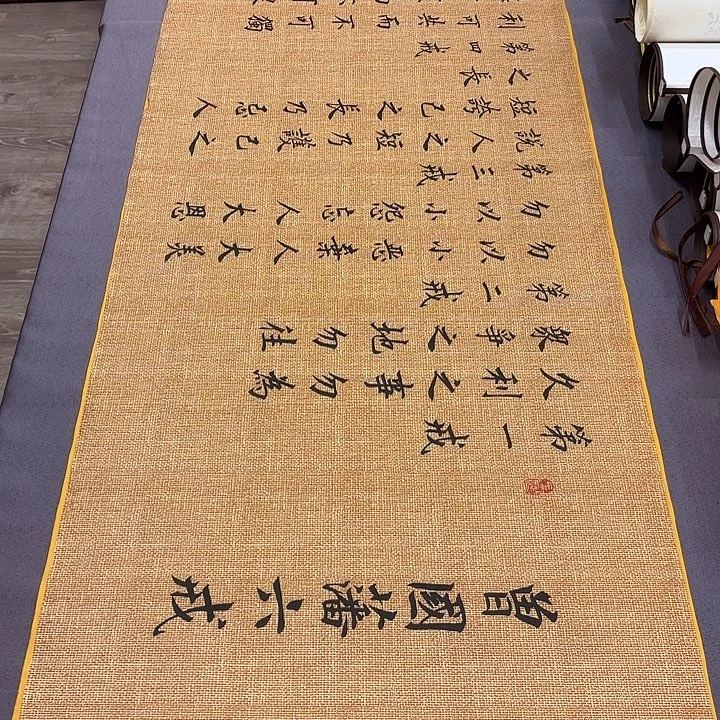 曾國藩六戒
第一戒
久利之事勿為
衆爭之地勿往
第二戒
勿以小惡棄人大美
勿以小怨忘人大恩
第三戒
說人之短乃護己之
短誇己之長乃忌人
之長
第四戒
利可共而不可獨